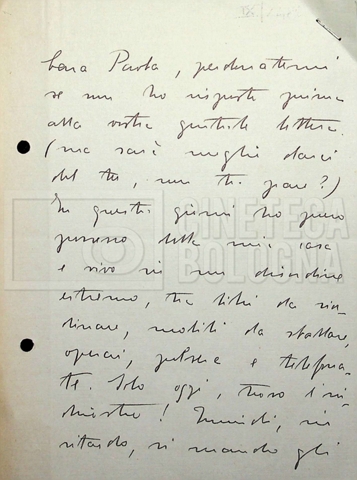 Cara Paola, perdonatemi
se non ho risposto prima
alla vostra gentile lettera.
(ma sarà meglio darci
del tu, non ti pare?)
In questi giorni ho preso
possesso della mia casa
e vivo in un disordine
estremo, tra libri da rior-
dinare, mobili da spostare,
operai, polvere e telefona-
te. Solo oggi, trovo l'in-
chiostro! Quindi, in
ritardo, vi mando gli
CINETECA
BOLOGNA